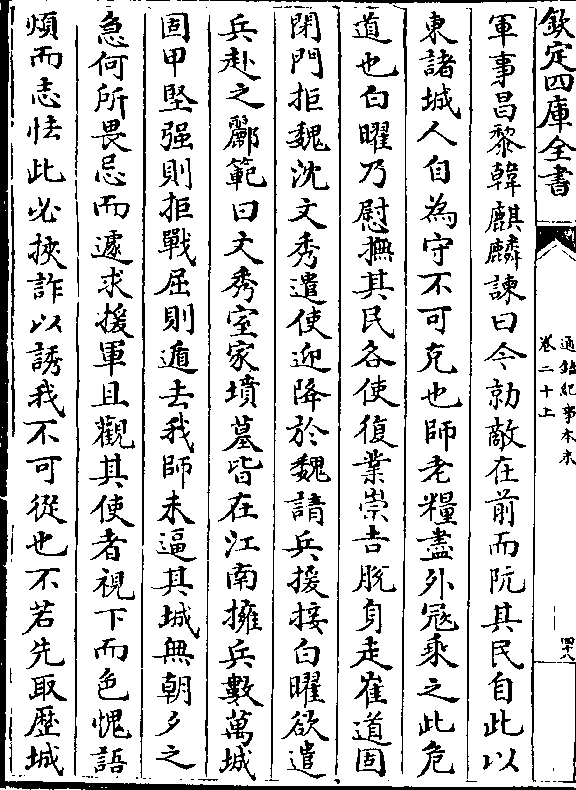 欽定四庫全書
通鑑紀事本末
卷二十上
四十八
軍事昌黎韓麒麟諫曰今勍敵在前而阬其民自此以
東諸城人自為守不可克也師老糧盡外寇乘之此危
道也白曜乃慰撫其民各使復業崇吉脫身走崔道固
閉門拒魏沈文秀遣使迎降於魏請兵援接白曜欲遣
兵赴之酈範曰文秀室家墳墓皆在江南擁兵數萬城
固甲堅强則拒戰屈則遁去我師未逼其城無朝夕之
急何所畏忌而遽求援軍且觀其使者視下而色愧語
煩而志怯此必挾詐以誘我不可從也不若先取歷城